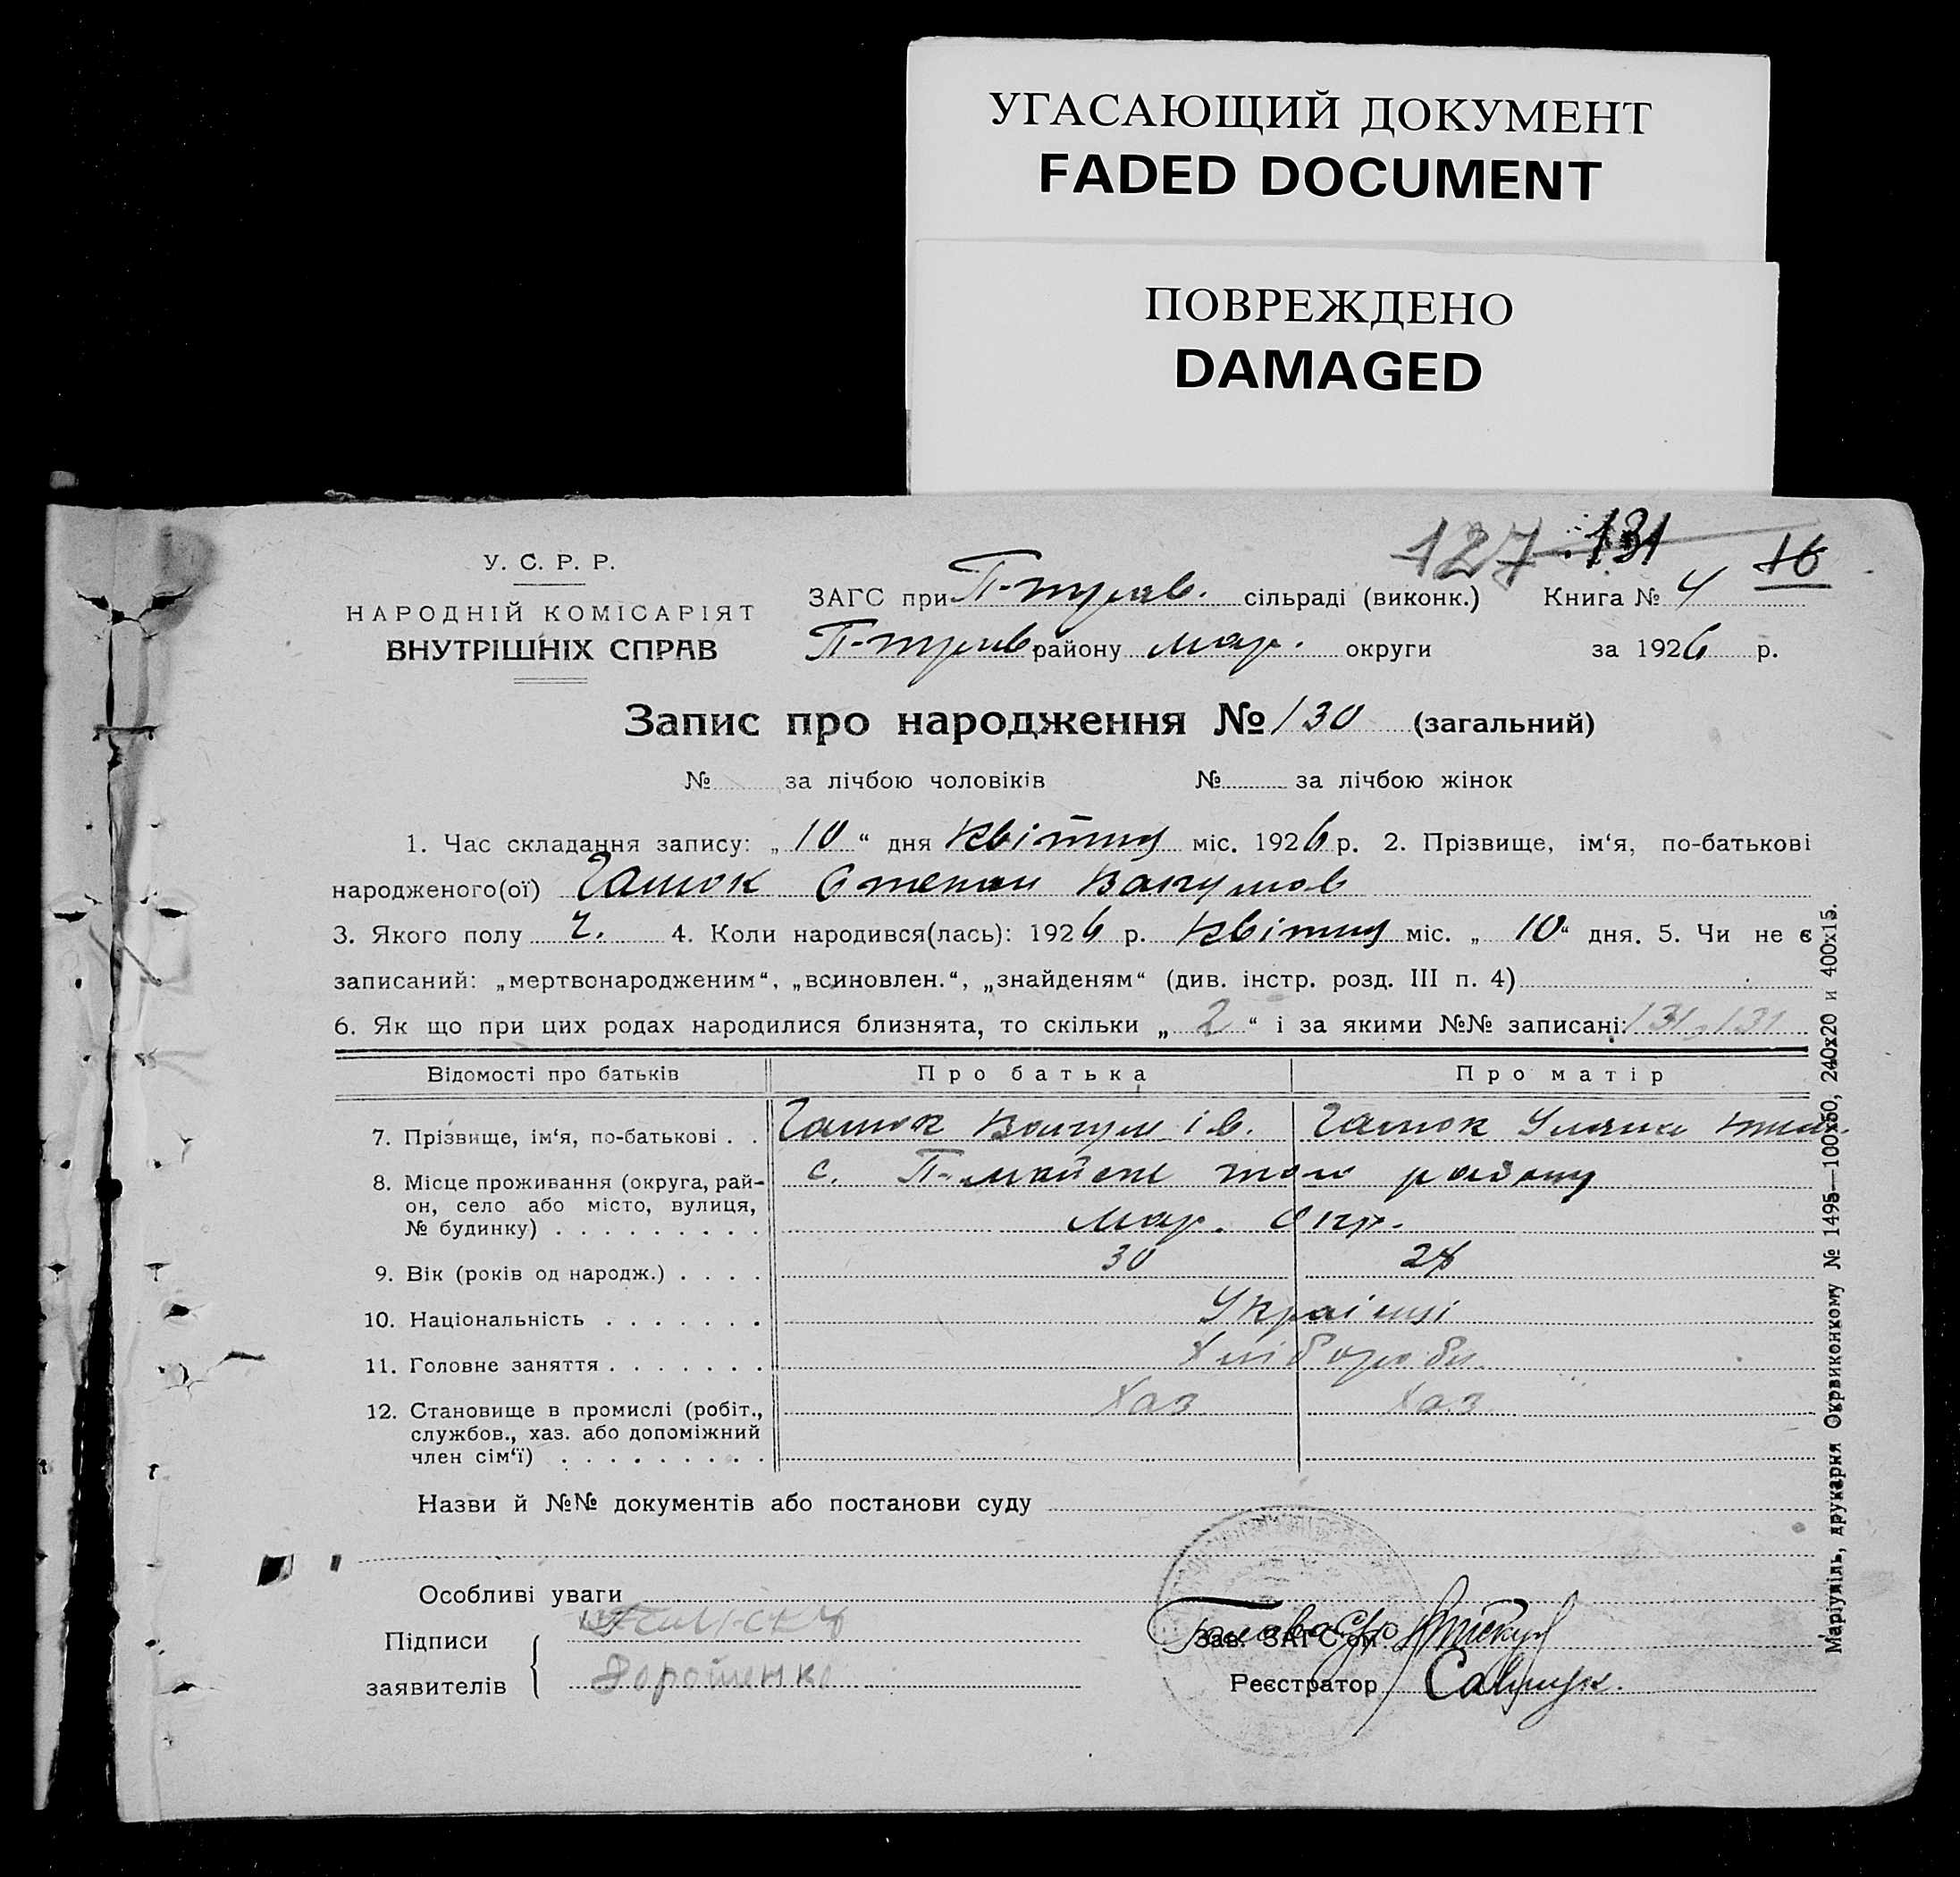 УГАСАЮЩИЙ ДОКУМЕНТ
FADED DOCUMENT
ПОВРЕЖДЕНО
DAMAGED
127 131 16
У. С. Р. Р.
НАРОДНІЙ КОМІСАРІЯТ
ВНУТРІШНІХ СПРАВ
ЗАГС при сільраді (виконк.) Книга № 4
району мар. округи за 1926 р.
Запис про народження № 130 (загальний)
№ за лічбою чоловіків № за лічбою жінок
1. Час складання запису: „ 10 “ дня квітня міс. 1926 р. 2. Прізвище, ім‘я, по-батькові
народженого(ої) Степан Вакулов
3. Якого полу ч. 4. Коли народився(лась): 1926 р. квітня міс. „ 10 “ дня. 5. Чи не є
записаний: „мертвонародженим“, „всиновлен.“, „знайденям“ (див. інстр. розд. III п. 4)
6. Як що при цих родах народилися близнята, то скільки „ 2 “ і за якими №№ записані: 131, 131
Відомості про батьків Про батька Про матір
7. Прізвище, ім‘я, по-батькові . . Вакул Ів. Уляна
8. Місце проживання (округа, рай-
он, село або місто, вулиця,
№ будинку) . . . . . . . . .
с. того району
мар. окр.
9. Вік (років од народж.) . . . . 30
10. Національність . . . . . . . Українці
11. Головне заняття . . . . . . . Хлібороби
12. Становище в промислі (робіт.,
службов., хаз. або допоміжний
член сім‘ї) . . . . . . . . .
Хаз Хаз
Назви й №№ документів або постанови суду
Особливі уваги
Підписи
заявителів
Дорошенко
Зав. ЗАГС‘ом
Реєстратор
Маріупіль, друкарня Окрвиконкому № 1495—100х50, 240х20 и 400х15.